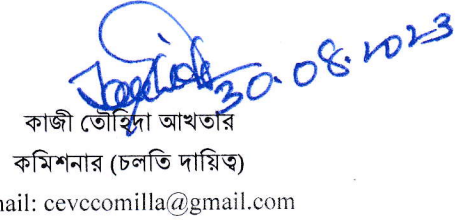 30.08.2023
কাজী তৌহিদা আখতার
কমিশনার (চলতি দায়িত্ব)
nail: cevccomilla@gmail.com